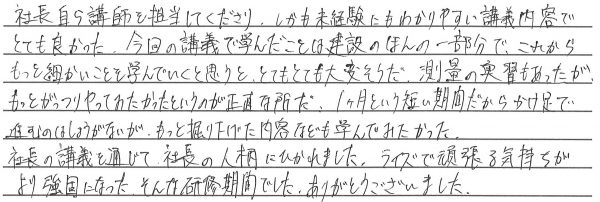 社長自ら講師を担当してくださり、しかも未経験にもわかりやすい講義内容で
とても良かった。今回の講義で学んだことは建設のほんの一部分で、これから
もっと細かいことを学んでいくと思うと、とてもとても大変そうだ。測量の実習もあったが、
もっとがっつりやってみたかったというのが正直な所だ。1ヶ月という短い期間だからかけ足で
進むのはしょうがないが、もっと掘り下げた内容なども学んでみたかった。
社長の講義を通じて、社長の人柄にひかれました。ライズで頑張る気持ちが
より強固になった、そんな研修期間でした。ありがとうございました。